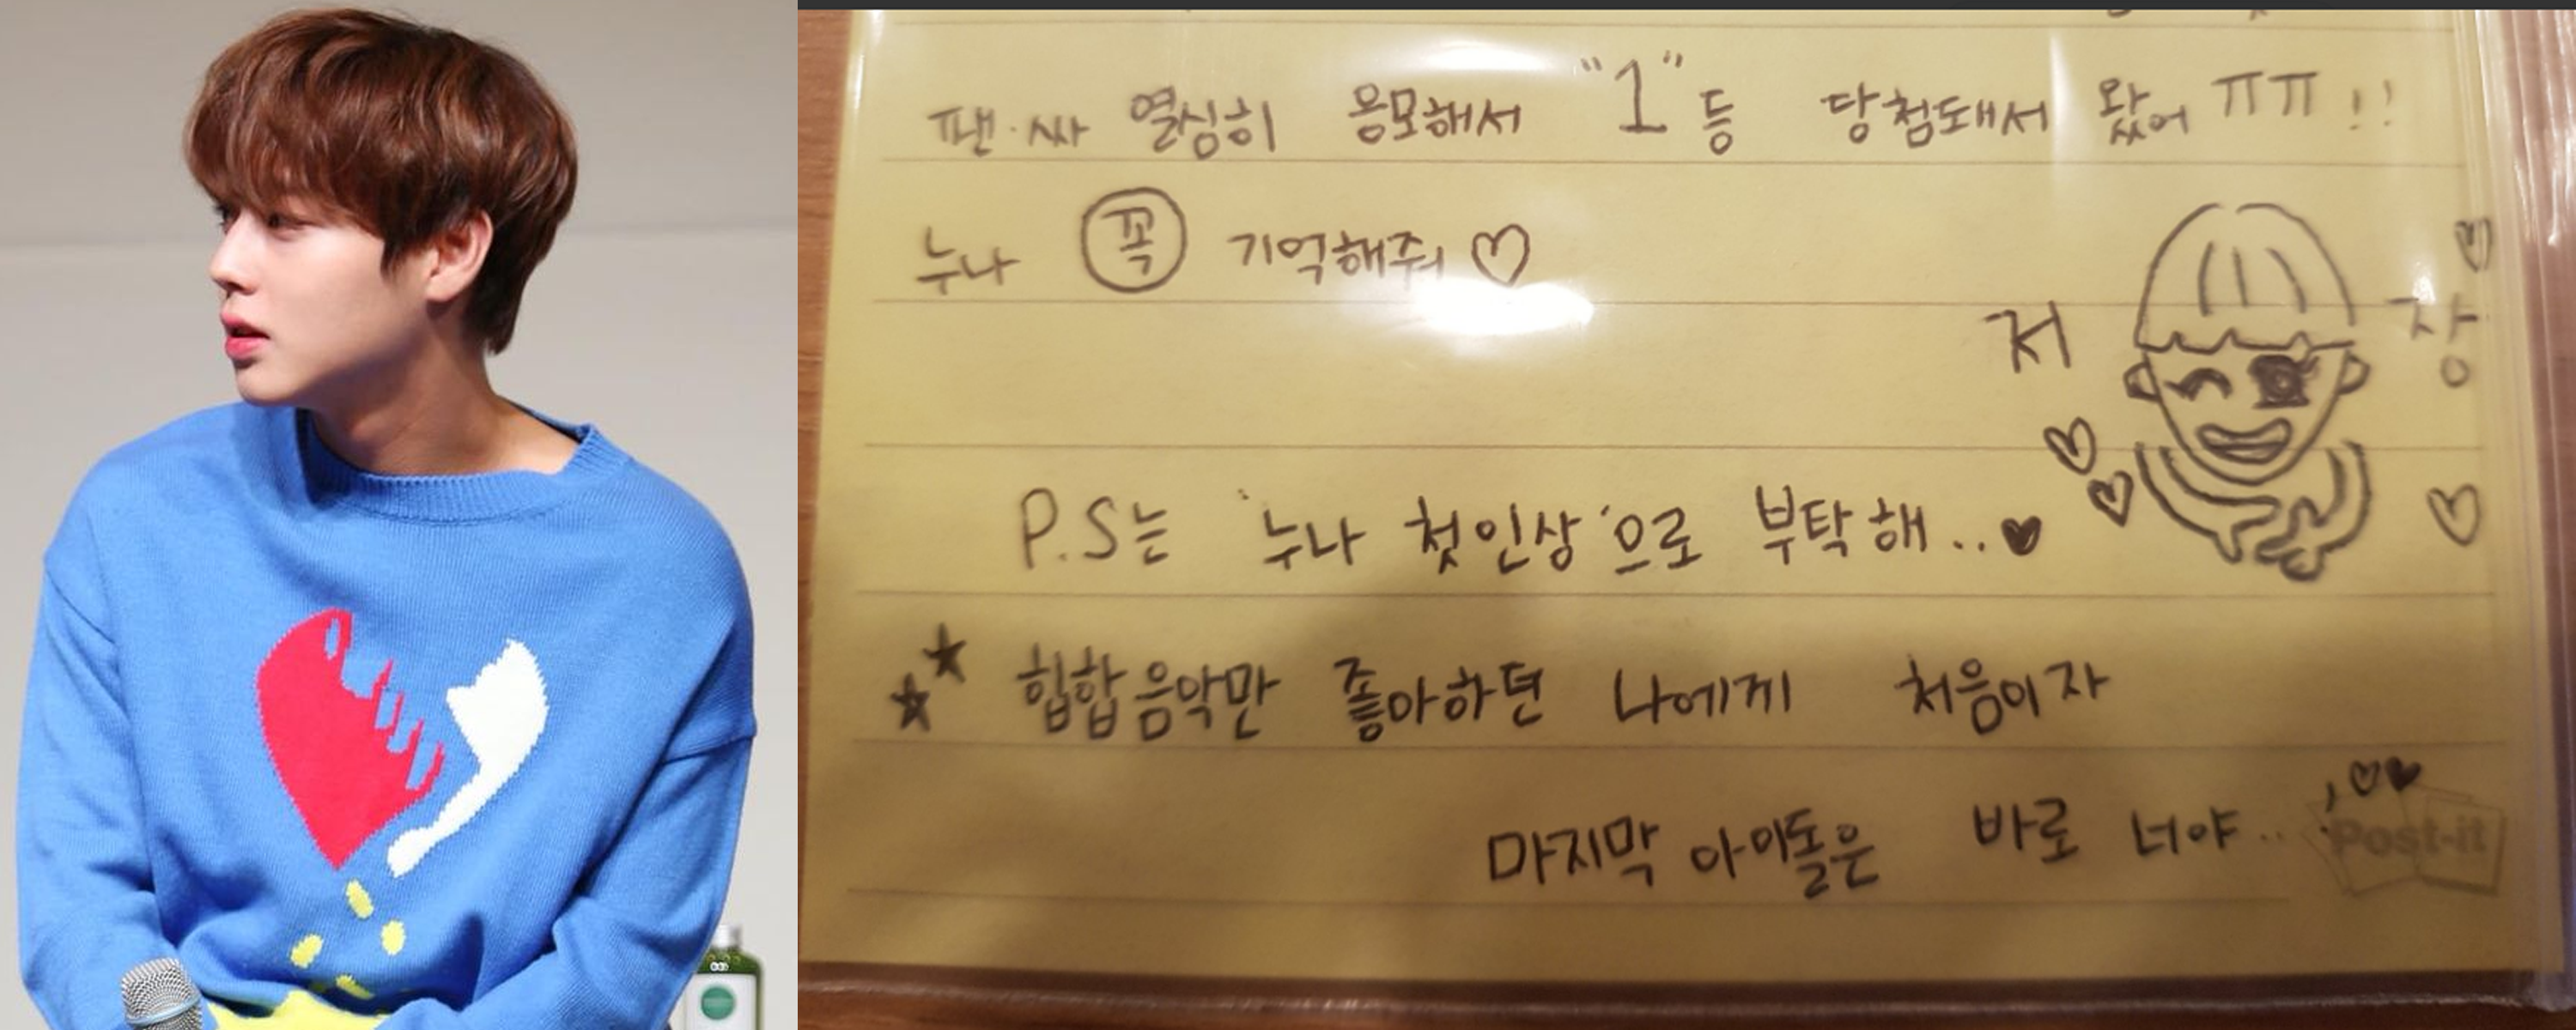 팬·싸 열심히 응모해서 "1"등 당첨돼서 왔어 ㅠㅠ!!
누나 꼭 기억해줘 ♡
저 장
P.S는 '누나 첫인상'으로 부탁해..♥
★★ 힙합음악만 좋아하던 나에게 처음이자
마지막 아이돌은 바로 너야..! ♡♥
Post-it